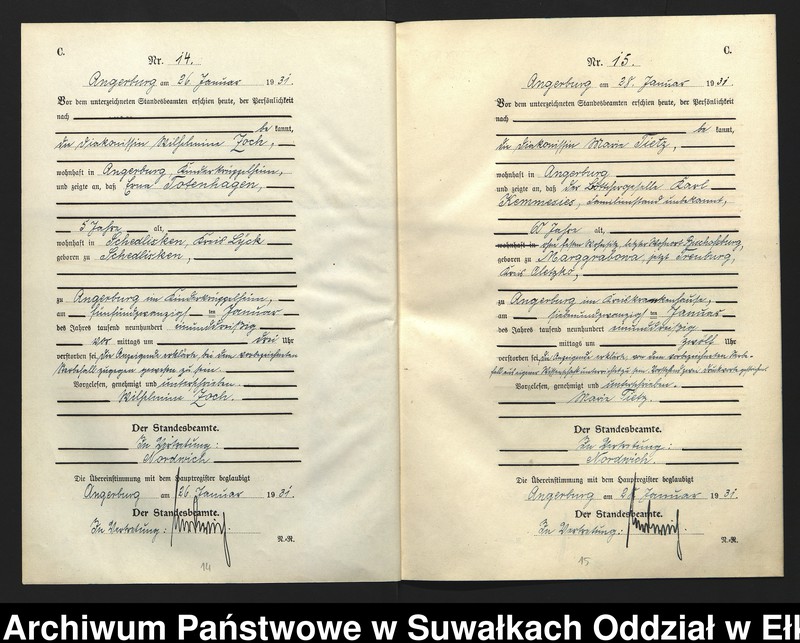 C.
Nr. 14.
Angerburg am 26. Januar 1931.
Vor dem unterzeichneten Standesbeamten erschien heute, der Persönlichkeit
nach
be kannt,
die Diakonissin Wilhelmine Zoch,
wohnhaft in Angerburg, Kinderkrüppelheim,
und zeigte an, daß Erna Totenhagen,
5 Jahre alt,
wohnhaft in Schedlisken, Kreis Lyck
geboren zu Schedlisken,
zu Angerburg im Kinderkrüppelheim,
am fünfundzwanzigsten Januar
des Jahres tausend neunhundert einunddreißig
vor mittags um drei Uhr
verstorben sei. Die Anzeigende erklärte, bei dem vorbezeichneten
Sterbefall zugegen gewesen zu sein.
Vorgelesen, genehmigt und unterschrieben.
Wilhelmine Zoch.
Der Standesbeamte.
In Vertretung:
Nordwich
Die Übereinstimmung mit dem Hauptregister beglaubigt
Angerburg am 26. Januar 1931.
Der Standesbeamte.
In Vertretung:
N.-R.
14
C.
Nr. 15.
Angerburg am 28. Januar 1931.
Vor dem unterzeichneten Standesbeamten erschien heute, der Persönlichkeit
nach
be kannt,
die Diakonissin Marie Tietz,
wohnhaft in Angerburg
und zeigte an, daß der Karl
Kemmesies, Familienstand unbekannt,
60 Jahre alt,
wohnhaft in ohne festen Wohnsitz, letzter Wohnort Bischofsburg,
geboren zu Marggrabowa, jetzt Treuburg,
Kreis Oletzko,
zu Angerburg im Kreiskrankenhause,
am siebenundzwanzigsten Januar
des Jahres tausend neunhundert einunddreißig
mittags um zwölf Uhr
verstorben sei. Die Anzeigende erklärte, von dem vorbezeichneten Sterbe-
fall aus eigener Wissenschaft unterrichtet zu sein.
Vorgelesen, genehmigt und unterschrieben.
Marie Tietz.
Der Standesbeamte.
In Vertretung:
Nordwich.
Die Übereinstimmung mit dem Hauptregister beglaubigt
Angerburg am 28. Januar 1931.
Der Standesbeamte.
In Vertretung:
N.-R.
15
Archiwum Państwowe w Suwałkach Oddział w Eł